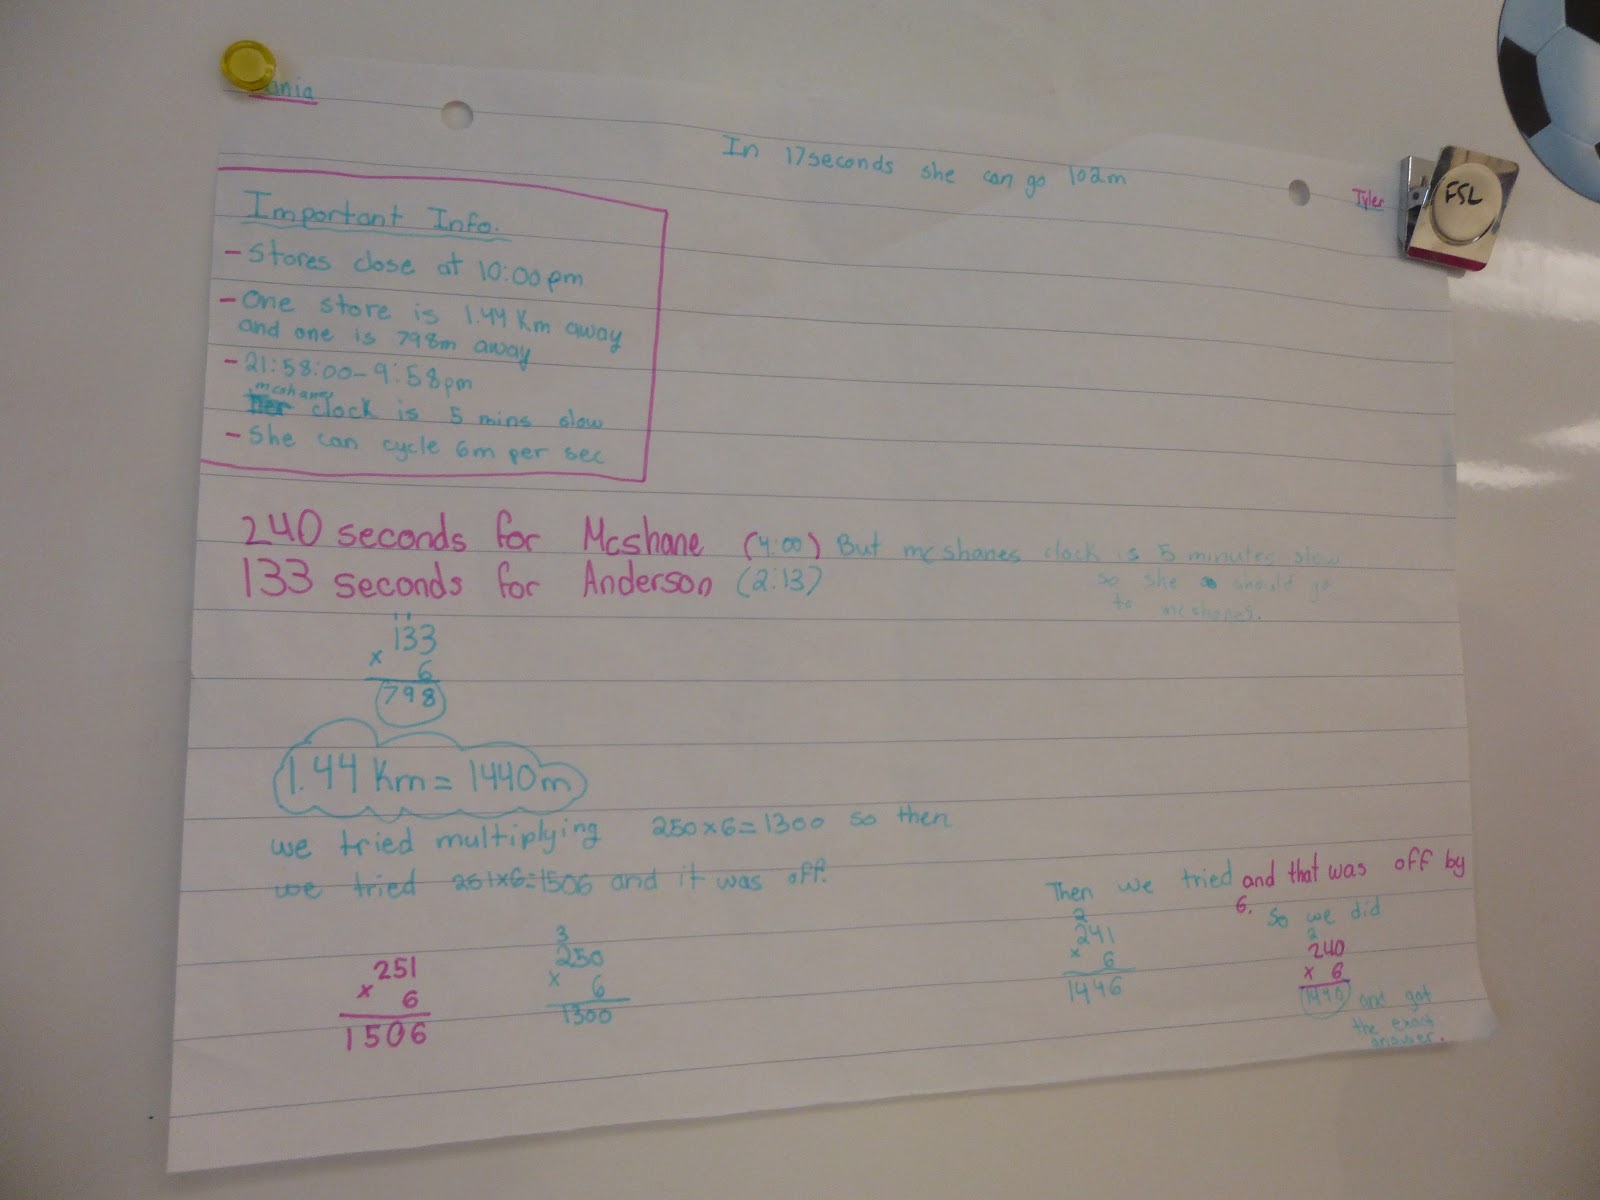 ania
In 17seconds she can go 102m
Tyler
FSL
Important Info.
- Stores close at 10:00pm
- One store is 1.44 Km away
and one is 798m away
- 21:58:00 - 9:58pm
mcshanes
clock is 5 mins slow
- She can cycle 6m per sec
240 seconds for Mcshane (4:00) But mcshanes clock is 5 minutes slow
so she should go
to mcshanes.
133 seconds for Anderson (2:13)
11
133
x 6
798
1.44 Km = 1440m
we tried multiplying 250x6=1300 so then
we tried 251x6=1506 and it was off.
251
x 6
1506
3
250
x 6
1300
Then we tried and that was off by
6. So we did
2
241
x 6
1446
2
240
x 6
1440 and got
the exact
answer.